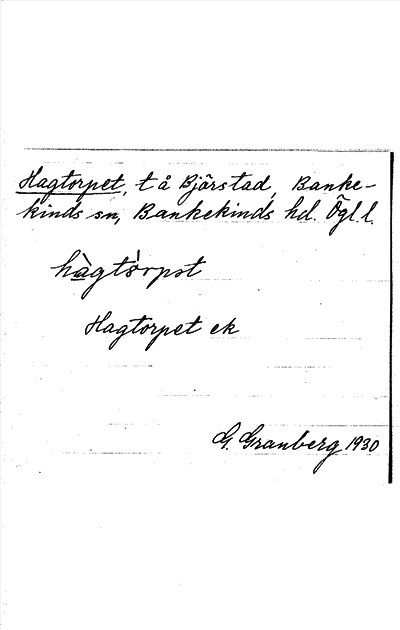 Hagtorpet, t å Björstad, Banke-
kinds sn, Bankekinds hd. Ögl. l.
hàgtòrpət
Hagtorpet ek
G. Granberg 1930